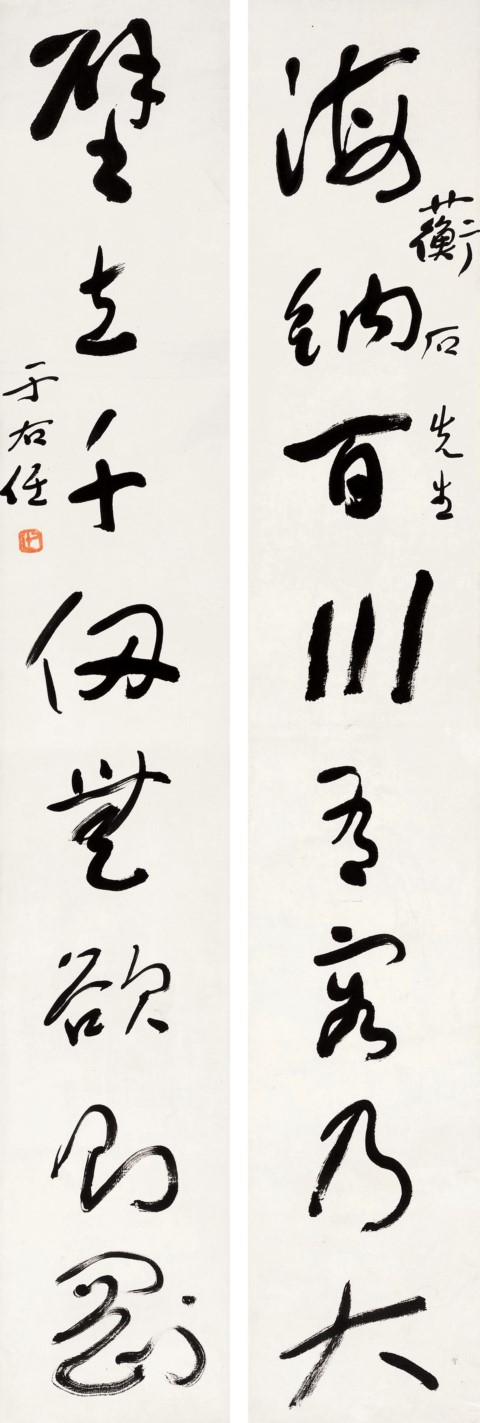 蘅石先生
海納百川有容乃大
壁立千仞無欲則剛
于右任